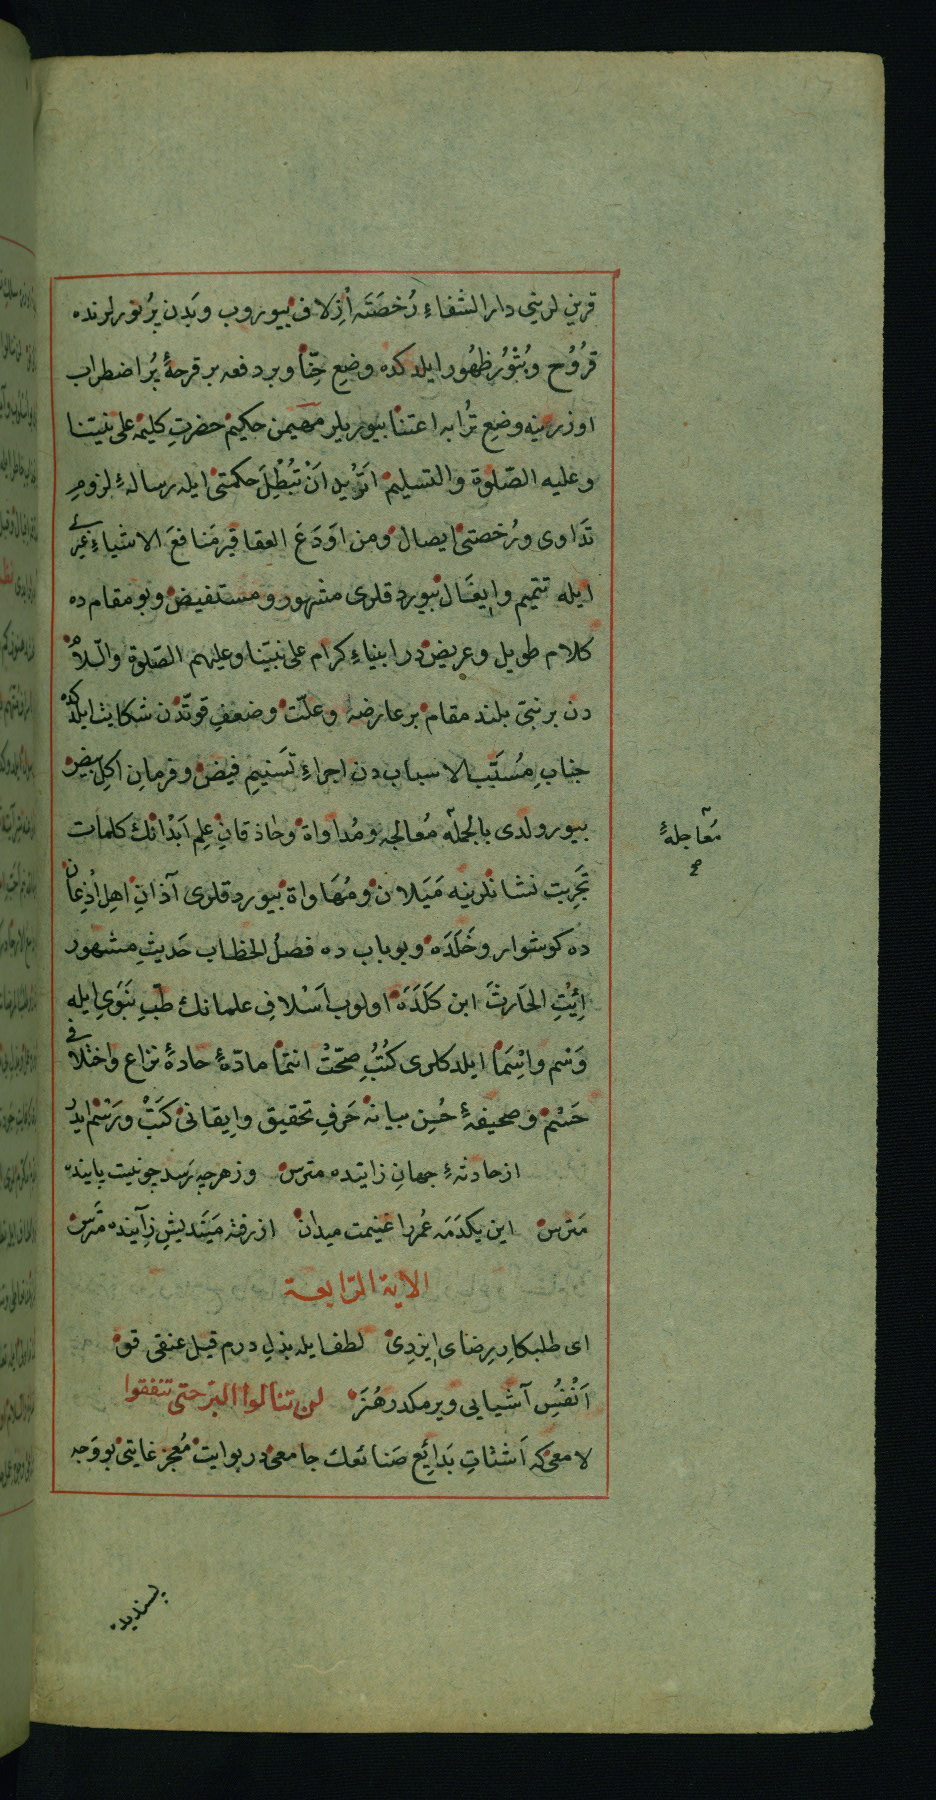 قرين لريني دار الشفاء رُخصَته اِزلاف بيوروب وبَدن پُرنورلرنده
قُرُوح وبُثُور ظهُور ايلدكده وضعِ حِنّا وبر دفعه بر قرحهٔ پُر اضطراب
اوزرينه وضعِ تُرابه اعتنا بيوريلر مهيمن حكيم حضرتِ كليمه على نبيّنا
وعليه الصّلوة والتسليم اَتُريد اَنْ تُبْطِلَ حكمتى ايله رسالهٔ لزومِ
تَداوى ورُخصتى ايصال ومن اَوْدَعَ العقاقير مَنافعَ الاشياءِ غيرى
ايله تتميم وايفال بيوردقلرى مشهور ومستفيض وبو مقام ده
كلام طويل وعريض در انبياءِ كرام على نبيّنا وعليهم الصّلوة والسّلام
دن بر نبىّ بلند مقام بر عارضه وعلّت وضعفِ قوتّدن شكايت ايلدكده
جنابِ مُسَبّب الاسباب دن اجراءِ تَسنيمِ فيض وفرمانِ اكلِ بيض
بيورولدى بالجمله مُعالجه ومُداواة وحاذقانِ علمِ اَبْدانك كلمات
تَجرِبت نشانلرينه مَيَلان ومُهَاواة بيوردقلرى آذانِ اهلِ اُذعان
ده كوشوار وخَلَدَه وبو باب ده فصلُ الخطاب حَديثِ مشهور
اِئيْتِ الحَارثَ ابن كَلَدَة اولوب اَسْلافِ علمانك طبّ نَبَوى ايله
وَسْم واسِمَا ايلدكلرى كُتُبِ صحّتْ انتما مادّهٔ حادهٔ نزاع واختلافى
حَسْم وصحيفهٔ حُسن بيانه حَرفِ تحقيق وايقانى كَتَبْ ورَسْم ايدر
از حادثهٔ جهانِ زاينده مترس وز هرچه رسد چو نيست پاينده
مَترس اين يكدَمه عُمر را غنيمت ميدان از رفته مَيَنديش زِآينده مترس
الاية الرّابعة
اى طلبكارِ رضاى ايزدى لطف ايله بذلِ درم قيل عنقى قو
اَنْفَسِ آشيايى ويرمكدر هُنَر لن تنالوا البرّ حتى تنفقوا
لامعى كه اَشْتاتِ بَدايِع صَنائعك جامعى در بو ايت مُعجز غايتى بو وَجه
معاجلهٔ
پسنديده